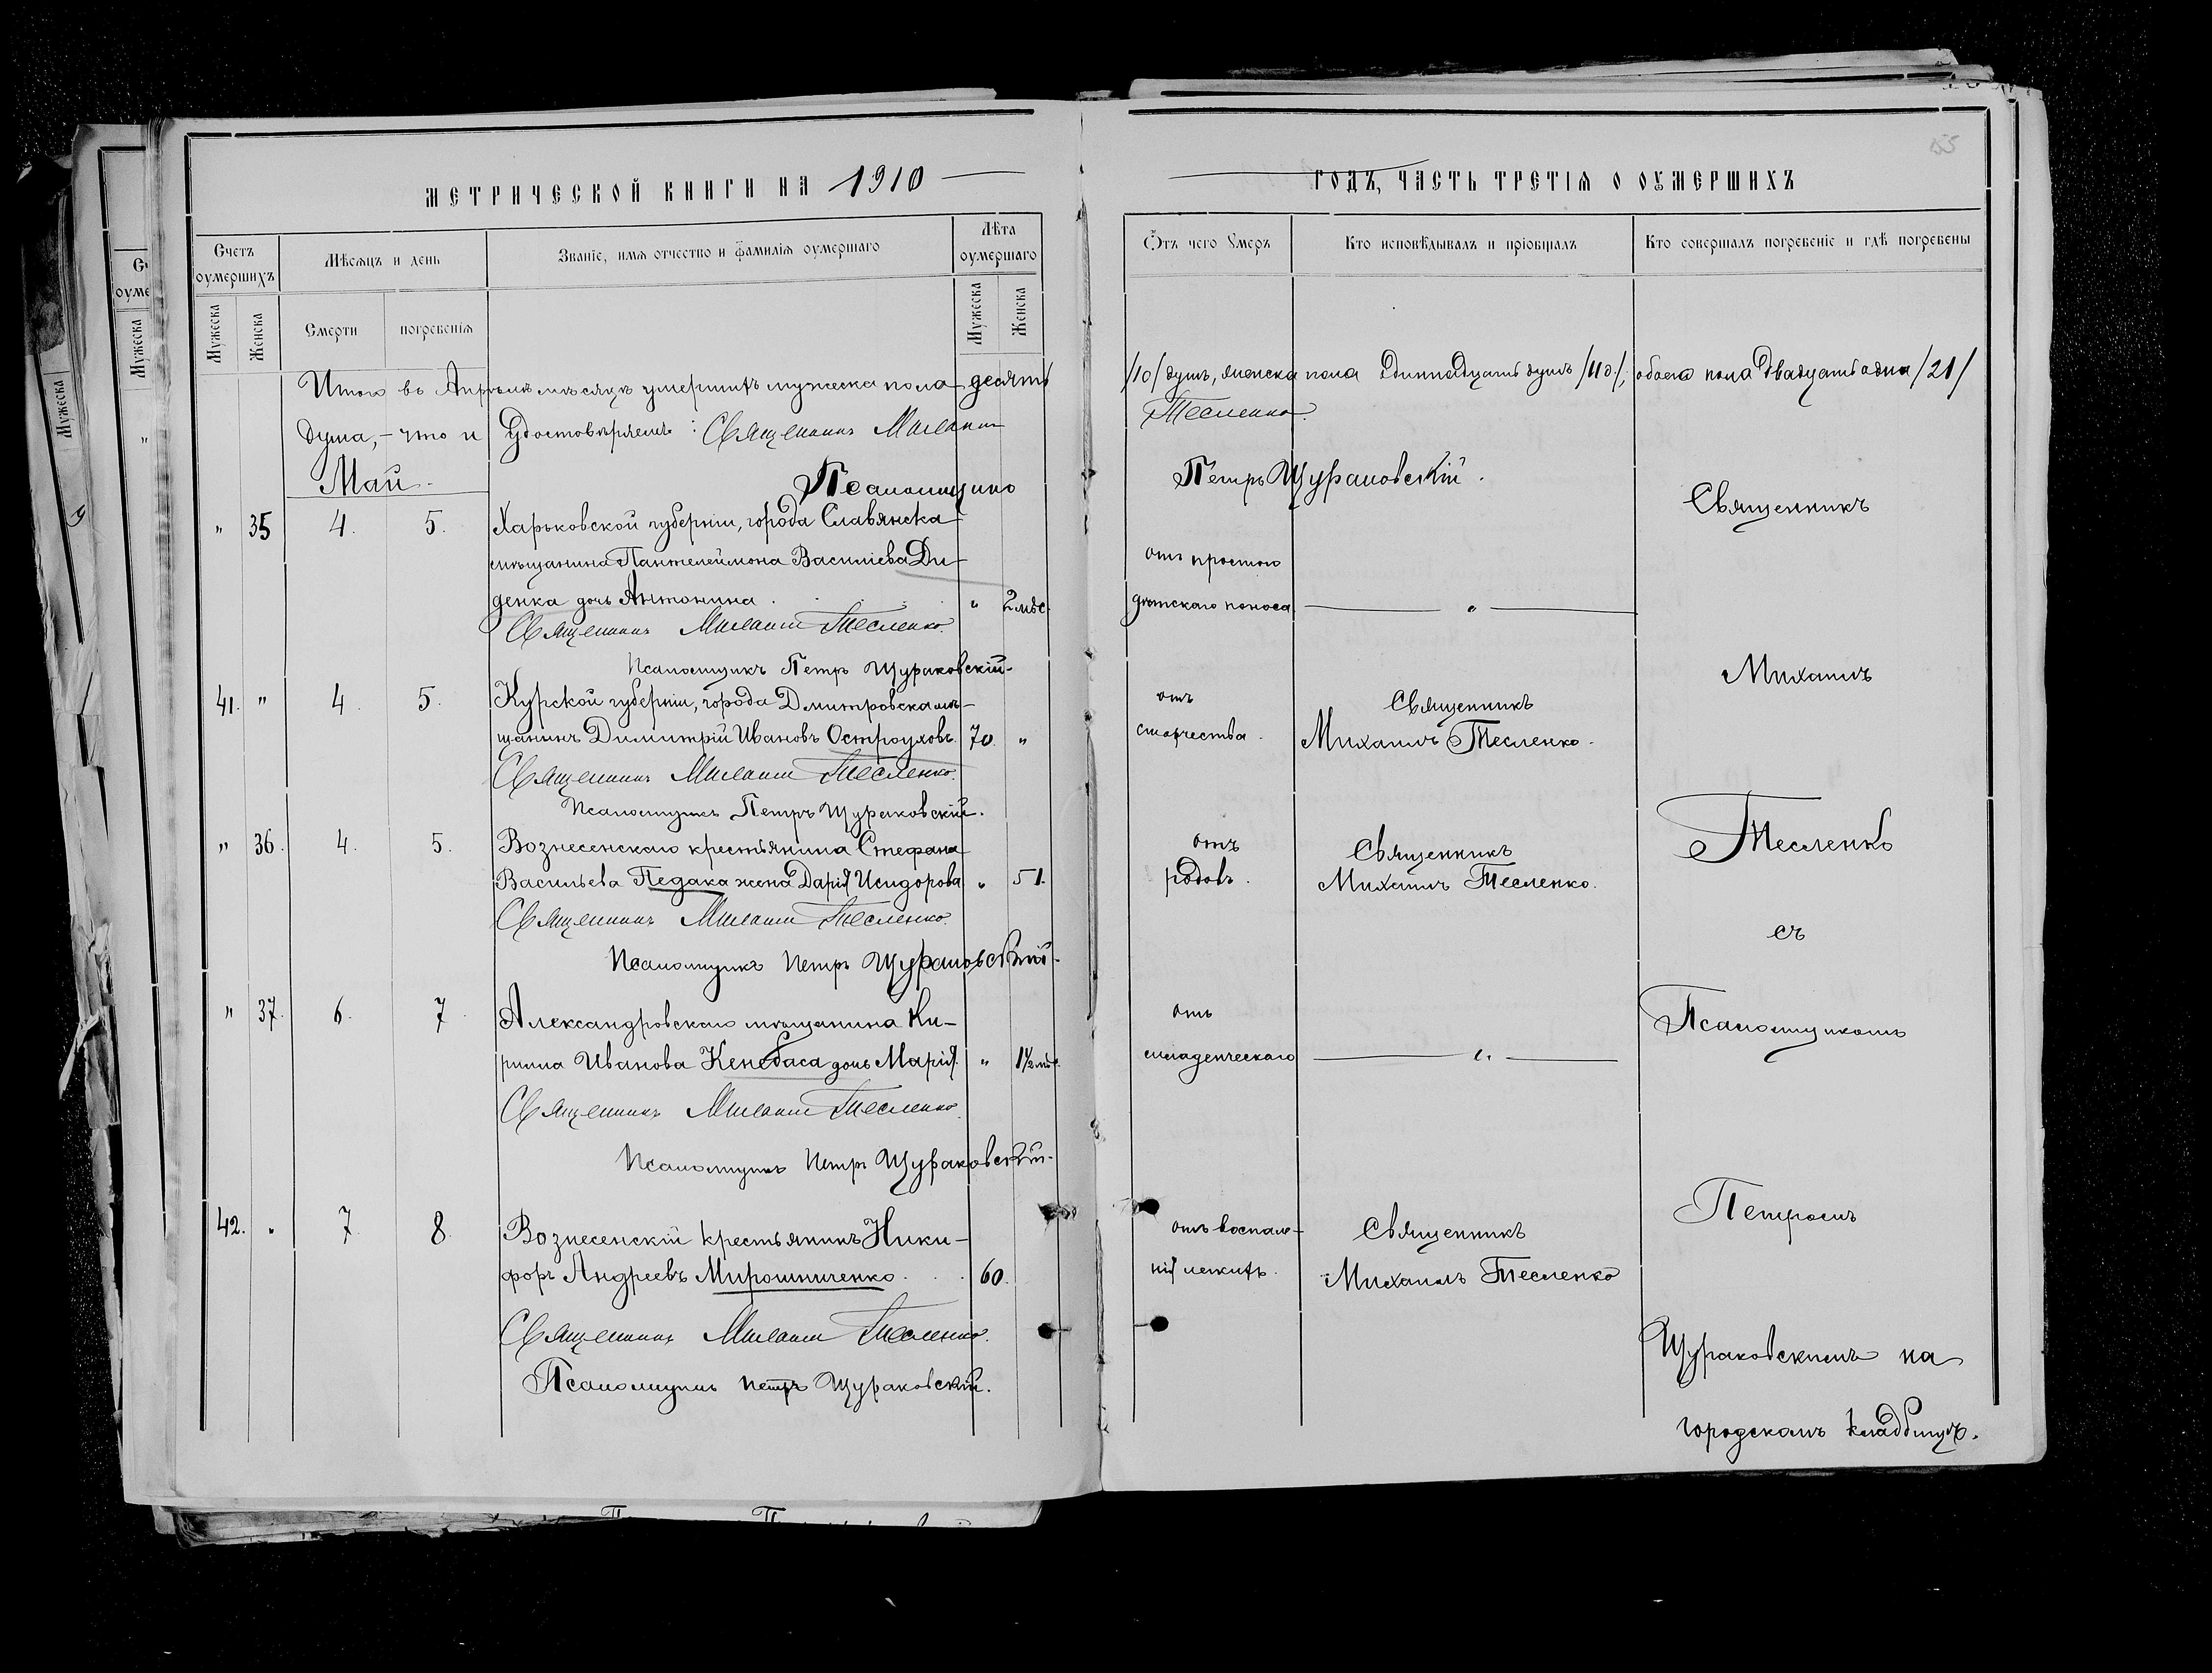 55
МЕТРИЧЕСКОЙ КНИГИ НА 1910
ГОДЪ, ЧАСТЬ ТРЕТІЯ О ОУМЕРШИХЪ
Счетъ оумершихъ
Мѣсяцъ и день
Званіе, имя отчество и фамилія оумершаго
Лѣта оумершаго
Отъ чего Умеръ
Кто исповѣдывалъ и пріобщалъ
Кто совершалъ погребеніе и гдѣ погребены
Мужеска
Женска
Смерти
погребенія
Мужеска
Женска
Итого въ Апрѣлѣ мѣсяцѣ умершихъ мужеска пола десять /10/ душъ, женска пола Одиннадцать душъ /11 д./, обоего пола двадцать одна /21/
душа, – что и удостовѣряемъ: Священникъ Михаилъ Тесленко.
Май.
Псаломщикъ Петръ Щураковскій.
" 35 4. 5. Харьковской губерніи, города Славянска
мѣщанина Пантелеймона Василіева Ди-
денка дочь Антонина . . . . " 2 мѣс.
отъ простого
дѣтскаго поноса
"
Священникъ Михаилъ Тесленко.
Псаломщикъ Петръ Щураковскій
41. " 4. 5. Курской губерніи, города Дмитровска мѣ-
щанинъ Димитрій Ивановъ Остроуховъ. 70. "
отъ
старчества.
Священникъ
Михаилъ Тесленко.
Священникъ Михаилъ Тесленко.
Псаломщикъ Петръ Щураковскій.
" 36. 4. 5. Вознесенскаго крестьянина Стефана
Васильева Педака жена Дарія Исидорова " 51.
отъ
родовъ.
Священникъ
Михаилъ Тесленко.
Священникъ Михаилъ Тесленко
Псаломщикъ Петръ Щураковскій
" 37. 6. 7. Александровскаго мѣщанина Ки-
рилла Иванова Кенебаса дочь Марія. " 1½ мѣс.
отъ
младенческаго
"
Священникъ Михаилъ Тесленко.
Псаломщикъ Петръ Щураковскій
42. " 7. 8. Вознесенскій крестьянинъ Ники-
форъ Андреевъ Мирошниченко . . . 60.
отъ воспале-
нія легкихъ.
Священникъ
Михаилъ Тесленко
Священникъ Михаилъ Тесленко.
Псаломщикъ Петръ Щураковскій.
Священникъ
Михаилъ
Тесленко
съ
Псаломщикомъ
Петромъ
Щураковскимъ на
городскомъ кладбищѣ.